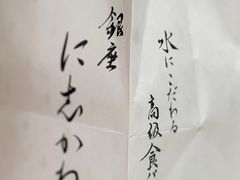 水にこだわる
高級食パ
銀座
に志かわ